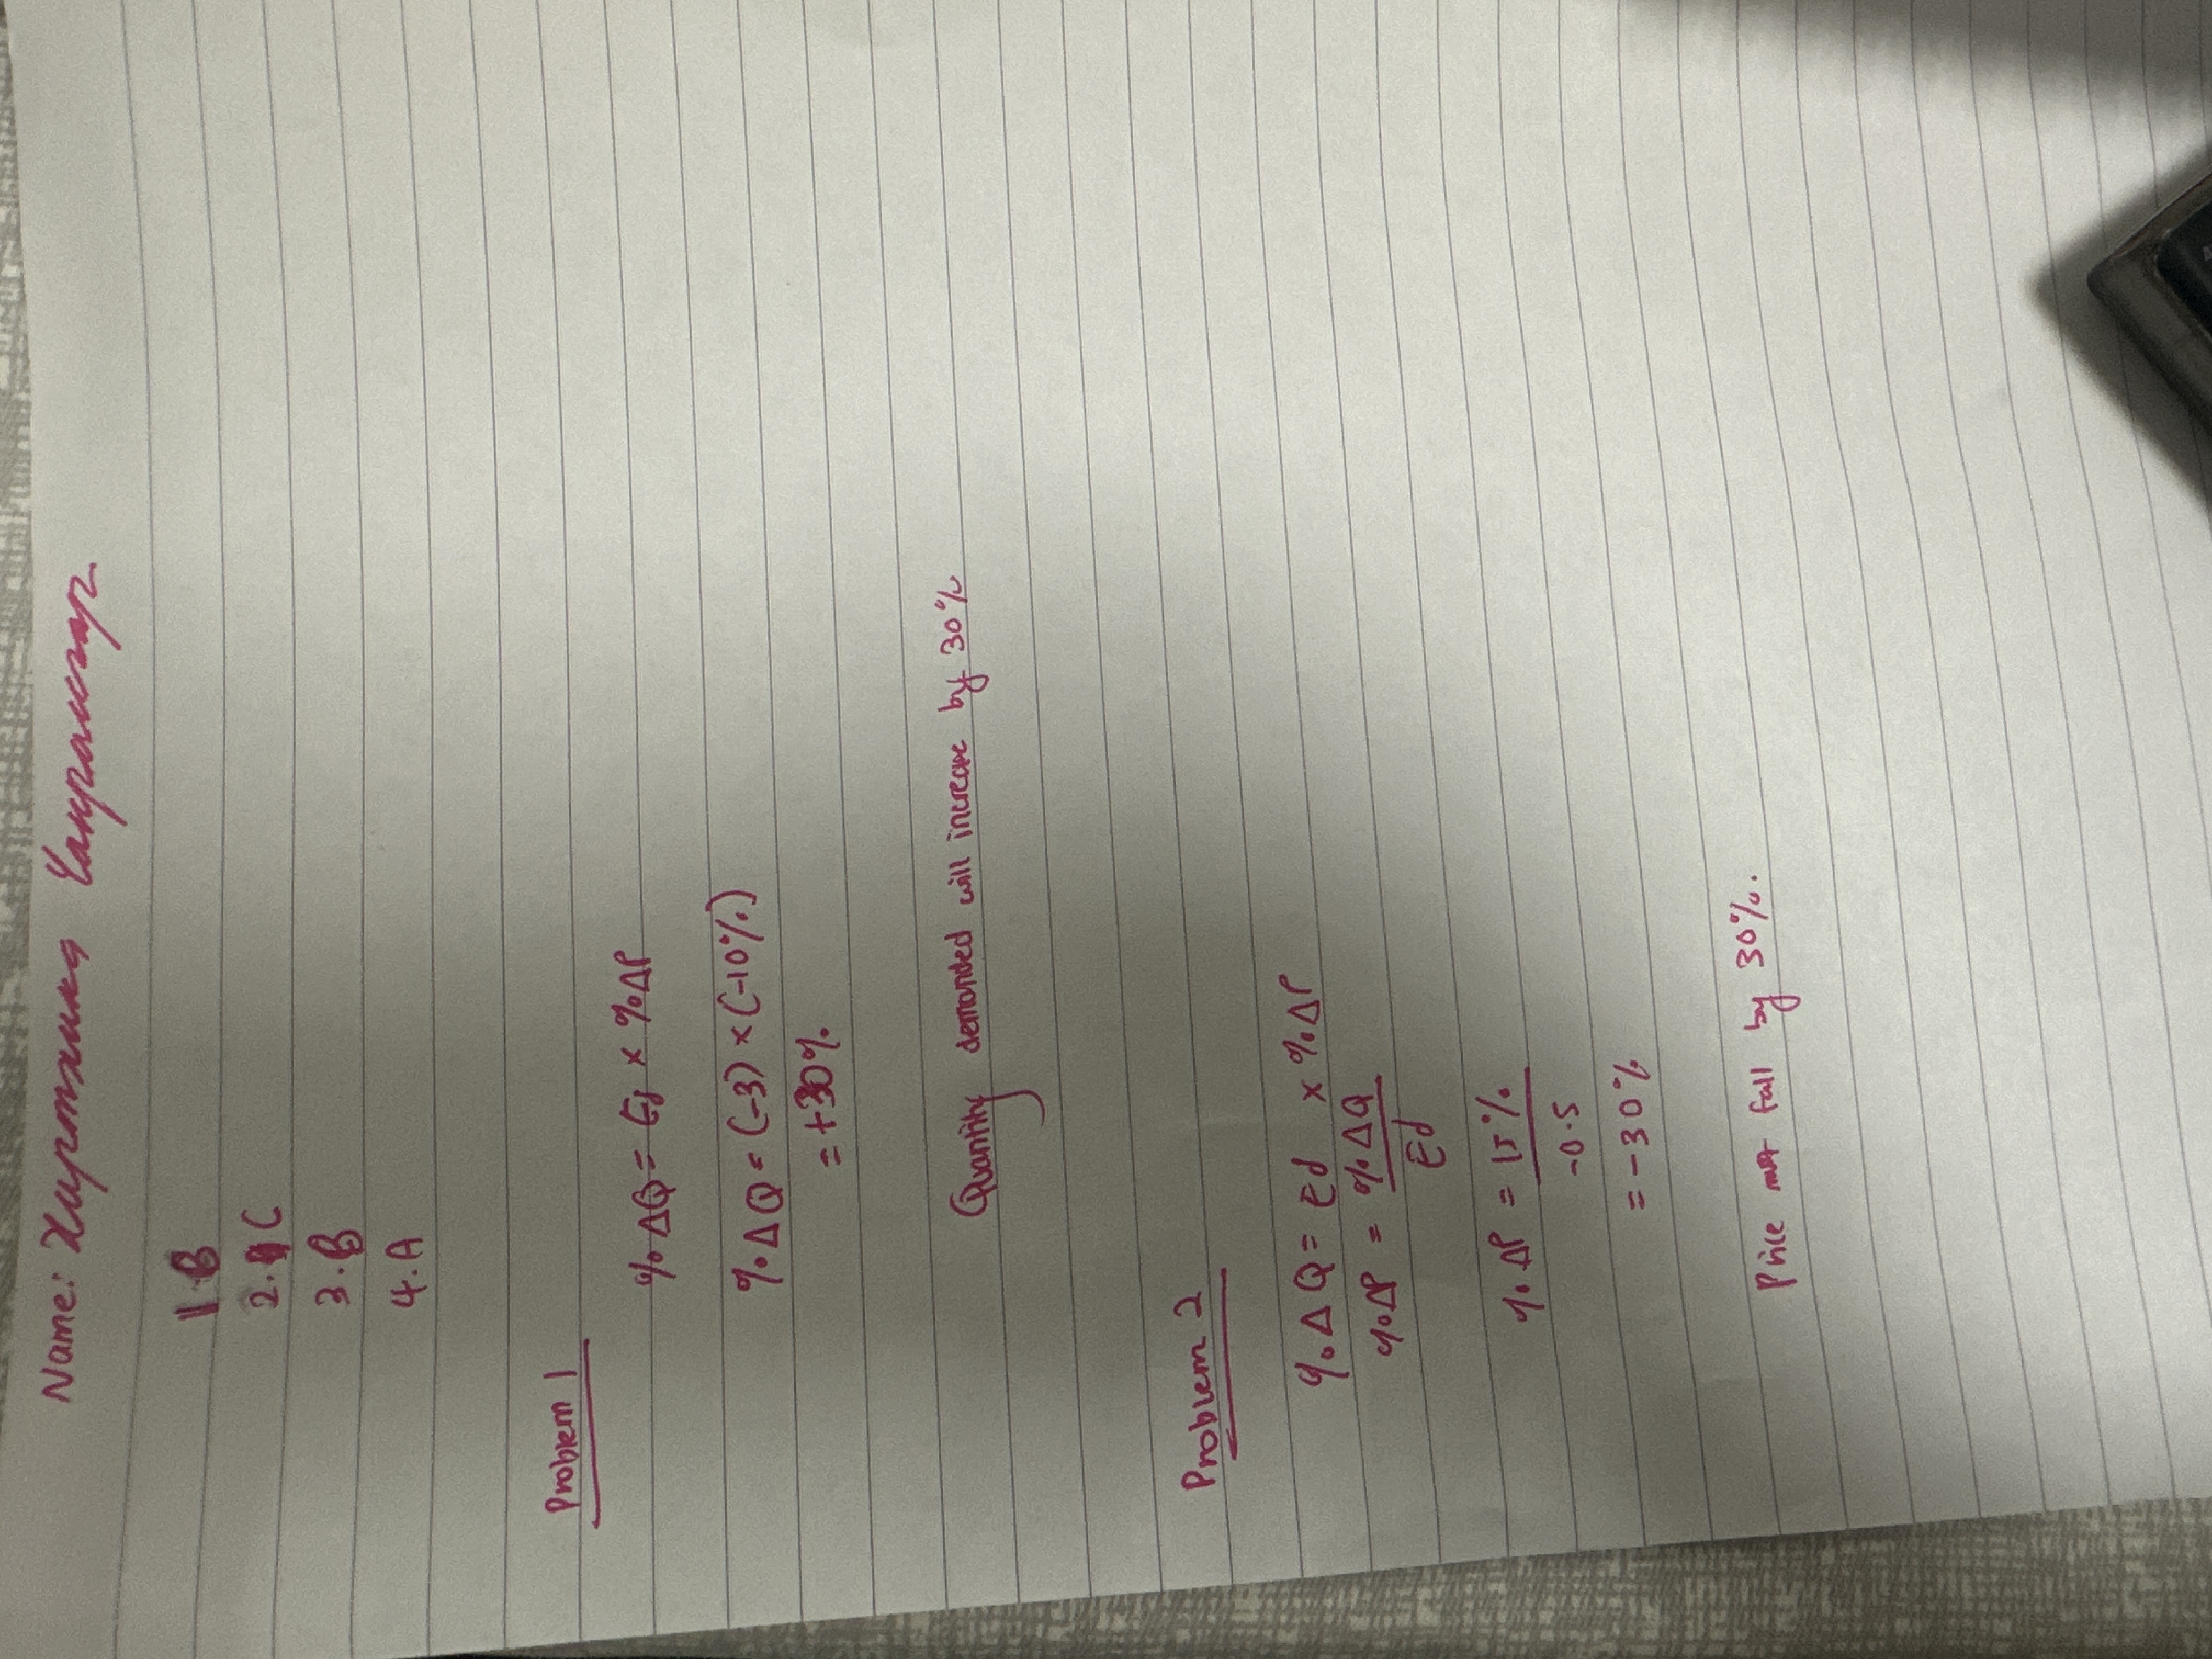 Name:
1. B
2. C
3. B
4. A
Problem 1
%ΔQ = Ed x %ΔP
%ΔQ = (-3) x (-10%)
= +30%
Quantity demanded will increase by 30%
Problem 2
%ΔQ = Ed x %ΔP
%ΔP = %ΔQ / Ed
%ΔP = 15% / -0.5
= -30%
Price must fall by 30%.